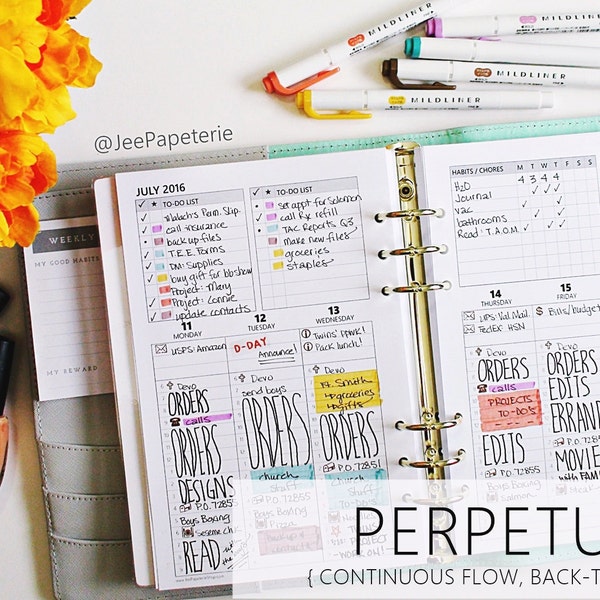 MILDLINER
MILDLINER
MILDLINER
MILDLINER
@JeePapeterie
JULY 2016
TO-DO LIST
Malachi's Perm. Slip
call insurance
back up files
T.E.E. Forms
DM: Supplies
buy gift for bb show
Project: Mary
Project: Connie
update contacts
TO-DO LIST
set appt for Solomon
call Rx refill
TAC Reports Q3
make new files
groceries
staples
HABITS / CHORES M T W T F S S
H2O 4 3 4 4
Journal
vac
bathrooms
Read: T.A.O.M.
WEEKLY
MY GOOD HABITS
MY REWARD
11
MONDAY
USPS: Amazon
Devo
ORDERS
calls
ORDERS
DESIGNS
P.O. 72855
Boys Boxing
READ
12
TUESDAY
D-DAY
Announce!
Devo
send boys
ORDERS
church
Staff
P.O. 72855
Boys Boxing
Pizza
13
WEDNESDAY
Twins' DPWK!
Pack lunch!
Devo
Ft. Smith
groceries
gifts
ORDERS
P.O. 72855
church
Staff
14
THURSDAY
UPS: Val. Mail
FedEx: HSN
Devo
ORDERS
calls
PROJECTS
TO-DO'S
EDITS
P.O. 72855
Boys Boxing
Salmon
15
FRIDAY
$ Bills/budget
Devo
ORDERS
EDITS
P.O. 72855
MOVIE
with Fam
PERPETU
{ CONTINUOUS FLOW, BACK-T